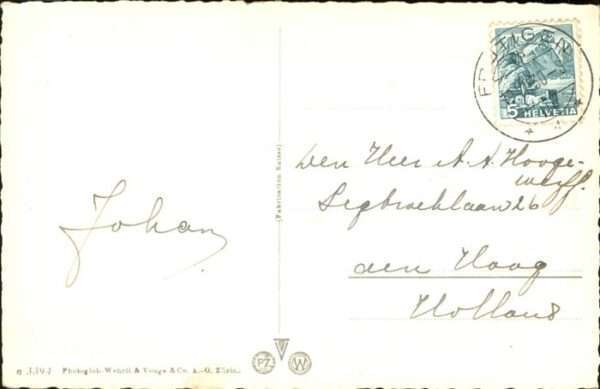 FRUTIGEN
5 HELVETIA
Den Heer A. A. Hooge-
werff.
Segbroeklaan 26
den Haag
Holland
Johan
(Fabrication Suisse)
Photoglob-Wehrli & Vouga & Co. A.-G. Zürich.
PZ W